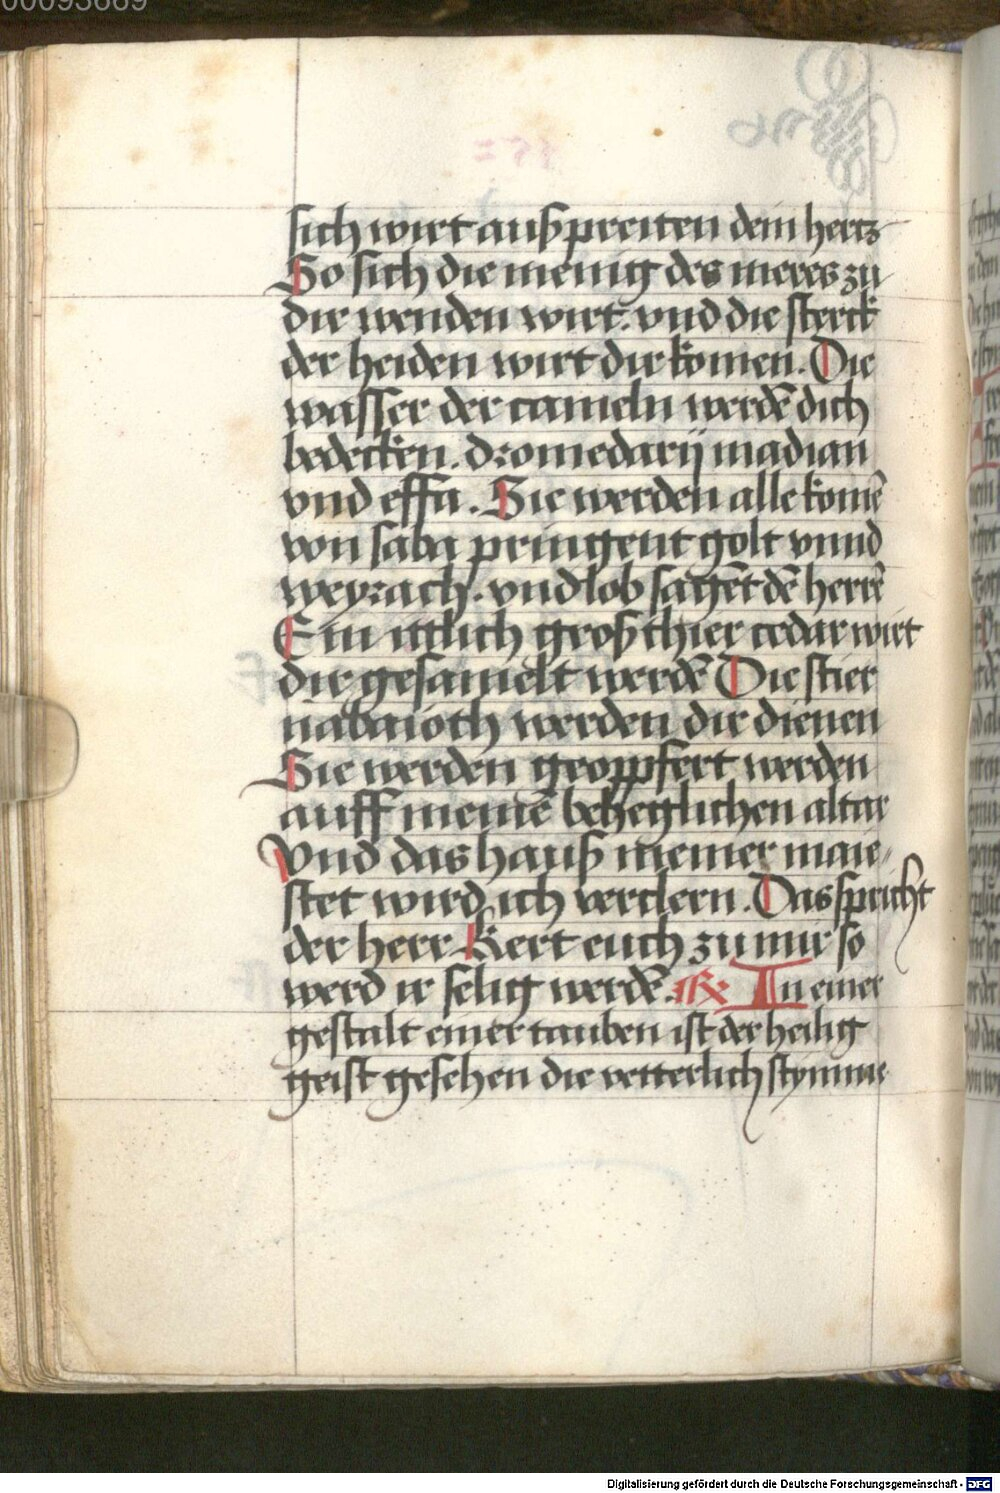 00093669
sich wirt außpreiten dein hertz
So sich die menig des meres zu
dir wenden wirt. vnd die sterck
der heiden wirt dir komen. Die
wasser der cameln werdē dich
bedecken. dromedarij madian
vnd effa. Sie werden alle komē
von saba pringent golt vnnd
weyrach. vnd lob sagēt dē herrē
Ein itlich groß thier cedar wirt
dir gesamelt werdē Die stier
nabaioth werden dir dienen
Sie werden geoppfert werden
auff meinē beheglichen altar
Vnd das hauß meiner maie-
stet wird ich verclern. Das spricht
der herr Kert euch zu mir so
werd ir selig werdē. ℟ In einer
gestalt einer tauben ist der heilig
geist gesehen die vetterlich stymme
Digitalisierung gefördert durch die Deutsche Forschungsgemeinschaft - DFG